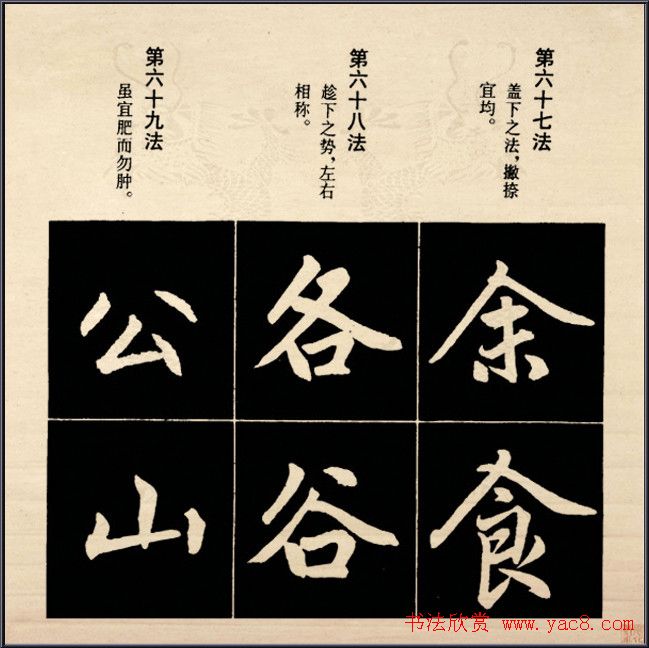 第六十七法
盖下之法，撇捺
宜均。
第六十八法
趁下之势，左右
相称。
第六十九法
虽宜肥而勿肿。
余
食
各
谷
公
山
书法欣赏 www.yac8.com